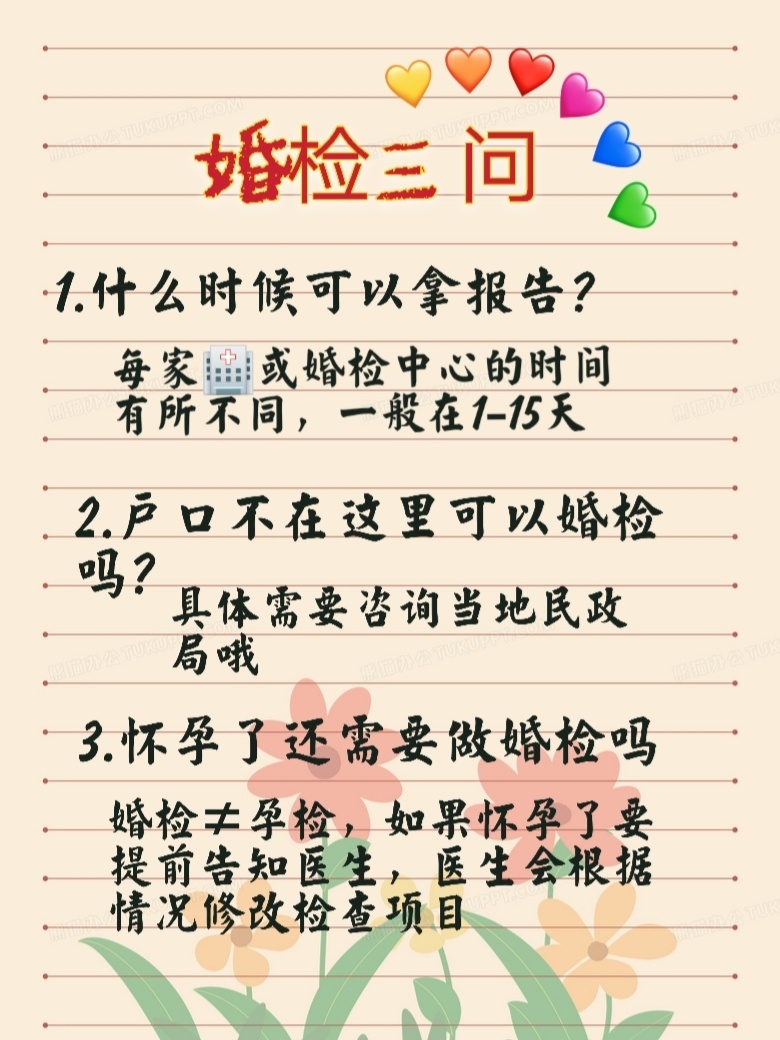 婚检三问
1.什么时候可以拿报告?
每家🏥或婚检中心的时间
有所不同，一般在1-15天
2.户口不在这里可以婚检
吗?
具体需要咨询当地民政
局哦
3.怀孕了还需要做婚检吗
婚检≠孕检，如果怀孕了要
提前告知医生，医生会根据
情况修改检查项目